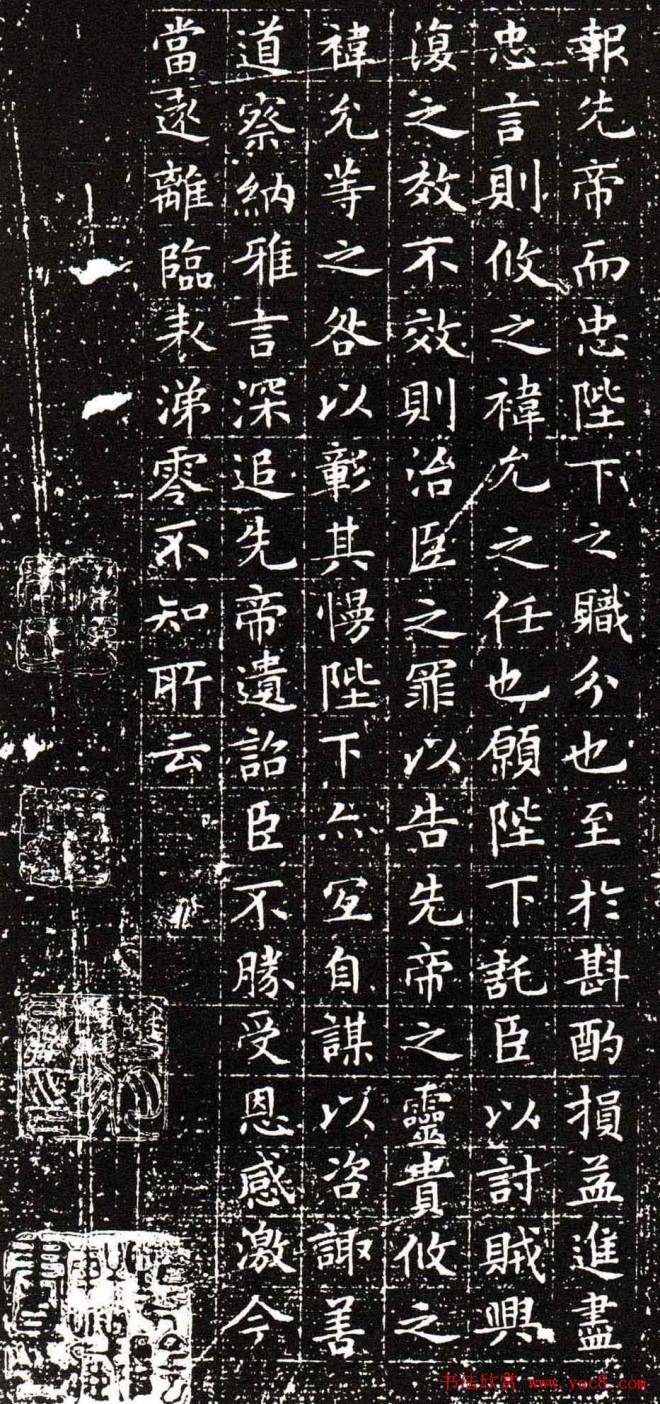 報先帝而忠陛下之職分也至於斟酌損益進盡
忠言則攸之禕允之任也願陛下託臣以討賊興
復之效不效則治臣之罪以告先帝之靈責攸之
禕允等之咎以彰其慢陛下亦宜自謀以咨諏善
道察納雅言深追先帝遺詔臣不勝受恩感激今
當遠離臨表涕零不知所云
书法欣赏 www.yac8.com